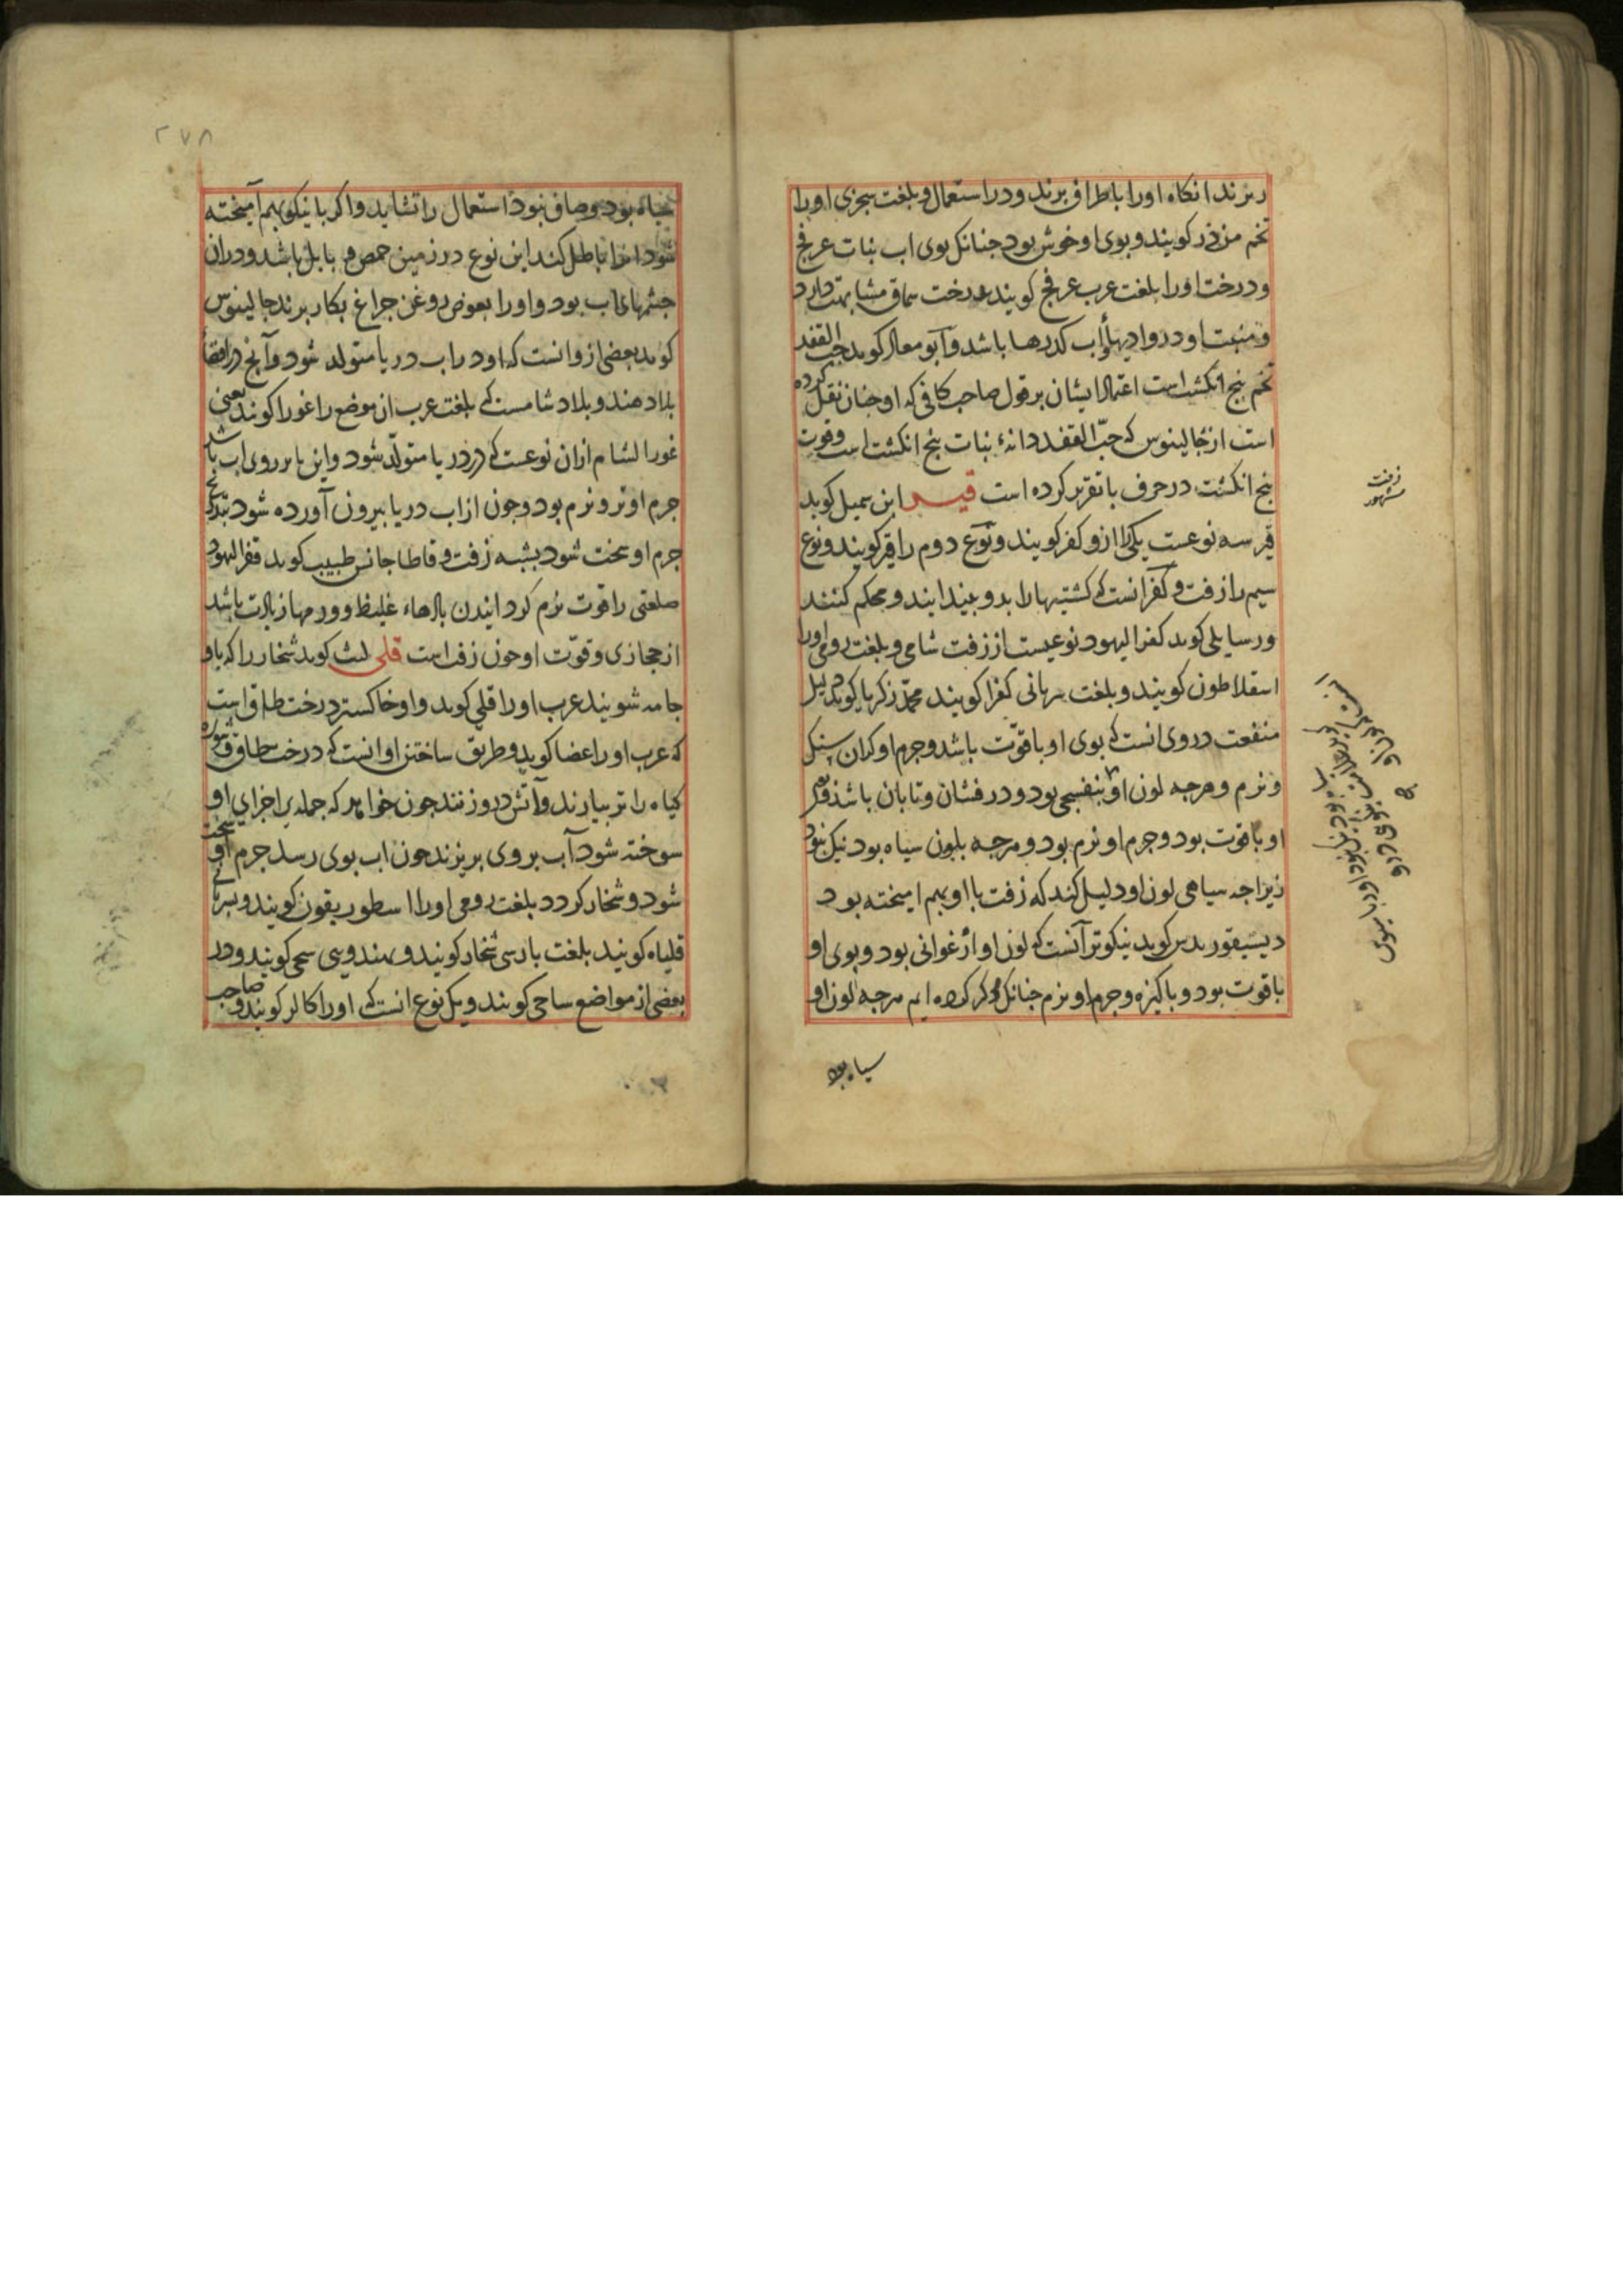 ریزند انکاه اورا باطراف برند ودر استعمال و بلغت سجزی اورا
تخم من کویند و بوی او خوش بود جنانک بوی اب نبات عرفج
و درخت اورا بلغت عرب عرفج کویند و درخت سماق مشابهت دارد
و منبت او در وادیها اب کدرها باشد وابو معال کوید حب القفد
تخم بنج انکشت است اعتماد ایشان بر قول صاحب کافی که او جنان نقل کرده
است از جالینوس که حبّ القفد دانهٔ نبات بنج انکشت است وقوت
بنج انکشت در حرف با تقریر کرده است قیر ابن سمیل کوید
قیر سه نوعست یکی را ازو کفر کویند و نوع دوم را قیر کویند و نوع
سیم را زفت و کفر انست که کشتیها را بدو بیندایند و محکم کنند
و رسایلی کوید کفر الیهود نوعیست از زفت شامی و بلغت رومی اورا
اسقلاطون کویند و بلغت سریانی کفرا کویند محمّد زکریا کوید دلیل
منفعت در وی انست که بوی او با قوّت باشد و جرم او کران سنک
و نرم و هرجه لون او بنفسجی بود و درفشان و تابان باشد
او با قوت بود و جرم او نرم بود و هرجه بلون سیاه بود نیک نبود
زیراجه سیاهی لون او دلیل کند که زفت با او بهم امیخته بود
دیسیقوریدس کوید نیکوتر آنست که لون او ارغوانی بود و بوی او
با قوت بود و باکیزه و جرم او نرم جنانک ذکر کرده ایم هرجه لون او
سیاه بود
زفت
مشهور
۲۷۸
سیاه بود و صاف نبود استعمال را نشاید واکر با نیکو بهم آمیخته
شود انرا باطل کند این نوع در زمین حمص و بابل باشد و دران
جشمهای اب بود واورا بعوض روغن جراغ بکار برند جالینوس
کوید بعضی ازو انست که او در اب دریا متولد شود وآنج در
بلاد هند و بلاد شامست که بلغت عرب ان موضع را غور کویند یعنی
غور الشام ازان نوعست که در دریا متولّد شود واین بر روی اب باشد
جرم او تر و نرم بود وجون از اب دریا بیرون آورده شود بتدریج
جرم او سخت شود بشبه زفت و قاطاجانس طبیب کوید قفر الیهود
صلعتی را قوت نرم کردانیدن غلیظ و ورمها زیادت باشد
از حجازی و قوّت او جون زفت است قلی لیث کوید شخار را که باو
جامه شویند عرب اورا قلی کوید واو خاکستر درخت طاق است
که عرب اورا غضا کوید وطریق ساختن او انست که درخت طاق و شوره
کیاه را تر بیارند وآتش درو زنند جون خواهد که جمله اجزای او
سوخته شود آب بر وی بریزند جون اب بوی رسد جرم او سخت
شود و شخار کردد بلغت رومی اورا اسطوریقون کویند و سریانی
قلیاه کویند بلغت بارسی شخار کویند و بهندوی سجی کویند و در
بعضی از مواضع ساجی کویند و یک نوع انست که اورا کالر کویند و صاحب